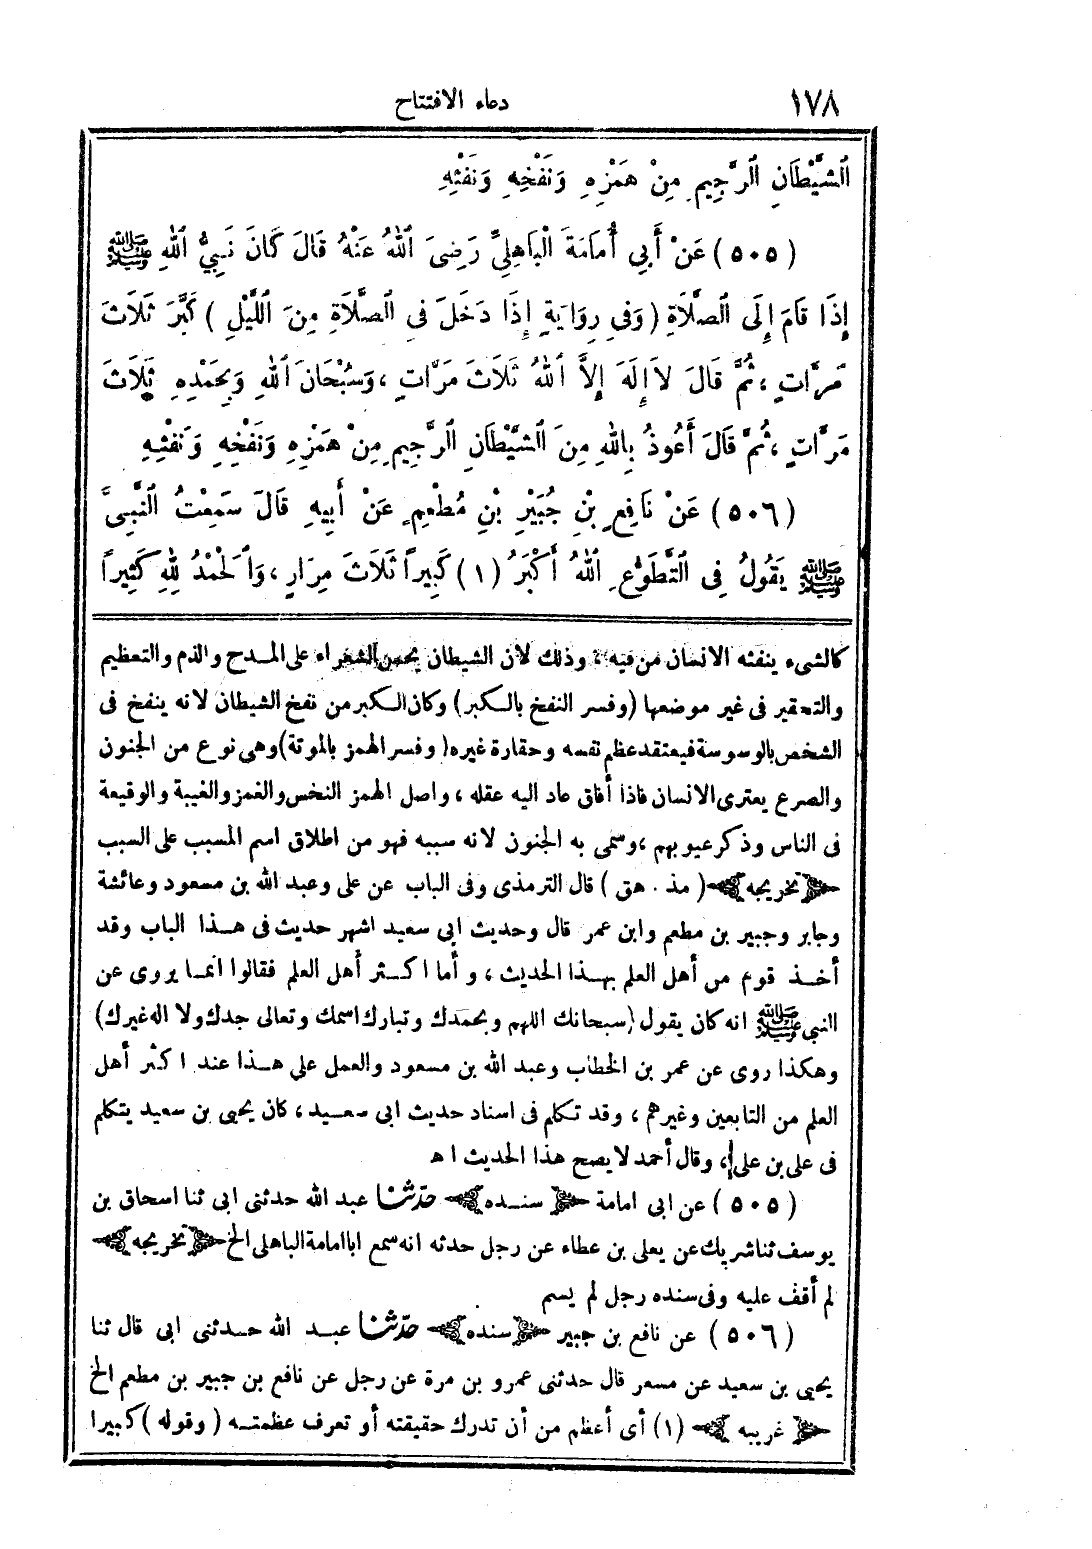 ١٧٨
دعاء الافتتاح
الشَّيْطَانِ الرَّجِيمِ مِنْ هَمْزِهِ وَنَفْخِهِ وَنَفْثِهِ
(٥٠٥) عَنْ أَبِي أُمَامَةَ الْبَاهِلِيِّ رَضِىَ اللهُ عَنْهُ قَالَ كَانَ نَبِيُّ اللهِ ﷺ
إِذَا قَامَ إِلَى الصَّلَاةِ (وَفِي رِوَايَةٍ إِذَا دَخَلَ فِى الصَّلَاةِ مِنَ اللَّيْلِ) كَبَّرَ ثَلَاثَ
مَرَّاتٍ، ثُمَّ قَالَ لاَ إِلَهَ إِلاَّ اللهُ ثَلَاثَ مَرَّاتٍ، وَسُبْحَانَ اللهِ وَبِحَمْدِهِ ثَلَاثَ
مَرَّاتٍ، ثُمَّ قَالَ أَعُوذُ بِاللهِ مِنَ الشَّيْطَانِ الرَّجِيمِ مِنْ هَمْزِهِ وَنَفْخِهِ وَنَفْثِهِ
(٥٠٦) عَنْ نَافِعِ بْنِ جُبَيْرِ بْنِ مُطْعِمٍ عَنْ أَبِيهِ قَالَ سَمِعْتُ النَّبِيَّ
ﷺ يَقُولُ فِى التَّطَوُّعِ اللهُ أَكْبَرُ (١) كَبِيراً ثَلَاثَ مِرَارٍ، وَالْحَمْدُ لِلهِ كَثِيراً
كالشىء ينفثه الانسان من فيه، وذلك لأن الشيطان يحمل الشعراء على المدح والذم والتعظيم
والتحقير فى غير موضعها (وفسر النفخ بالكبر) وكان الكبر من نفخ الشيطان لانه ينفخ فى
الشخص بالوسوسة فيعتقد عظم نفسه وحقارة غيره (وفسر الهمز بالموتة) وهى نوع من الجنون
والصرع يعترى الانسان فاذا أفاق عاد اليه عقله، واصل الهمز النخس والغمز والغيبة والوقيعة
فى الناس وذكر عيوبهم، وسمى به الجنون لانه سببه فهو من اطلاق اسم المسبب على السبب
﴿تخريجه﴾ (مذ . هق) قال الترمذى وفى الباب عن على وعبد الله بن مسعود وعائشة
وجابر وجبير بن مطعم وابن عمر قال وحديث ابى سعيد اشهر حديث فى هذا الباب وقد
أخذ قوم من أهل العلم بهذا الحديث، وأما اكثر أهل العلم فقالوا انما يروى عن
النبى ﷺ انه كان يقول (سبحانك اللهم وبحمدك وتبارك اسمك وتعالى جدك ولا اله غيرك)
وهكذا روى عن عمر بن الخطاب وعبد الله بن مسعود والعمل على هذا عند اكثر أهل
العلم من التابعين وغيرهم، وقد تكلم فى اسناد حديث ابى سعيد، كان يحيى بن سعيد يتكلم
فى على بن على، وقال أحمد لا يصح هذا الحديث اه
(٥٠٥) عن ابى امامة ﴿سنده﴾ حدّثنا عبد الله حدثنى ابى ثنا اسحاق بن
يوسف ثنا شريك عن يعلى بن عطاء عن رجل حدثه انه سمع ابا امامة الباهلى الخ ﴿تخريجه﴾
لم أقف عليه وفى سنده رجل لم يسم
(٥٠٦) عن نافع بن جبير ﴿سنده﴾ حدّثنا عبد الله حدثنى ابى قال ثنا
يحيى بن سعيد عن مسعر قال حدثنى عمرو بن مرة عن رجل عن نافع بن جبير بن مطعم الخ
﴿غريبه﴾ (١) أى أعظم من أن تدرك حقيقته أو تعرف عظمته (وقوله) كبيرا